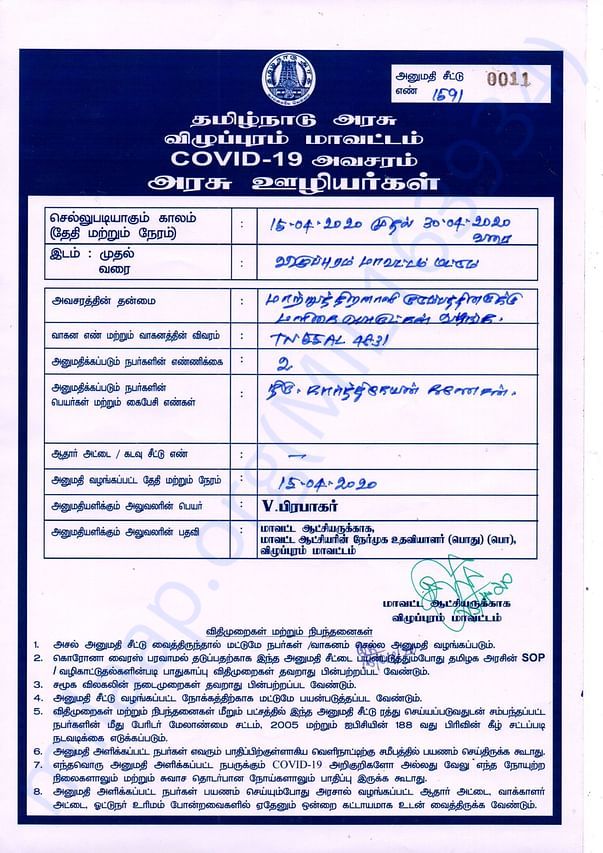 அனுமதி சீட்டு
எண் 1591 0011
தமிழ்நாடு அரசு
விழுப்புரம் மாவட்டம்
COVID-19 அவசரம்
அரசு ஊழியர்கள்
செல்லுபடியாகும் காலம்
(தேதி மற்றும் நேரம்) : 15-04-2020 முதல் 30-04-2020
வரை
இடம் : முதல்
வரை : விழுப்புரம் மாவட்டம் மட்டும்
அவசரத்தின் தன்மை : மாற்றுத்திறனாளி
மளிகை பொருட்கள் வழங்க.
வாகன எண் மற்றும் வாகனத்தின் விவரம் : TN 55 AL 4831
அனுமதிக்கப்படும் நபர்களின் எண்ணிக்கை : 2
அனுமதிக்கப்படும் நபர்களின்
பெயர்கள் மற்றும் கைபேசி எண்கள் : திரு. கார்த்திகேயன் கணேசன்.
ஆதார் அட்டை / கடவு சீட்டு எண் : –
அனுமதி வழங்கப்பட்ட தேதி மற்றும் நேரம் : 15-04-2020
அனுமதியளிக்கும் அலுவலரின் பெயர் : V.பிரபாகர்
அனுமதியளிக்கும் அலுவலரின் பதவி : மாவட்ட ஆட்சியருக்காக,
மாவட்ட ஆட்சியரின் நேர்முக உதவியாளர் (பொது) (பொ),
விழுப்புரம் மாவட்டம்
மாவட்ட ஆட்சியருக்காக
விழுப்புரம் மாவட்டம்
விதிமுறைகள் மற்றும் நிபந்தனைகள்
1. அசல் அனுமதி சீட்டு வைத்திருந்தால் மட்டுமே நபர்கள் /வாகனம் செல்ல அனுமதி வழங்கப்படும்.
2. கொரோனா வைரஸ் பரவாமல் தடுப்பதற்காக இந்த அனுமதி சீட்டை பயன்படுத்தும்போது தமிழக அரசின் SOP
/ வழிகாட்டுதல்களின்படி பாதுகாப்பு விதிமுறைகள் தவறாது பின்பற்றப்பட வேண்டும்.
3. சமூக விலகலின் நடைமுறைகள் தவறாது பின்பற்றபட வேண்டும்.
4. அனுமதி சீட்டு வழங்கப்பட்ட நோக்கத்திற்காக மட்டுமே பயன்படுத்தப்பட வேண்டும்.
5. விதிமுறைகள் மற்றும் நிபந்தனைகள் மீறும் பட்சத்தில் இந்த அனுமதி சீட்டு ரத்து செய்யப்படுவதுடன் சம்பந்தப்பட்ட
நபர்களின் மீது பேரிடர் மேலாண்மை சட்டம், 2005 மற்றும் ஐபிசியின் 188 வது பிரிவின் கீழ் சட்டப்படி
நடவடிக்கை எடுக்கப்படும்.
6. அனுமதி அளிக்கப்பட்ட நபர்கள் எவரும் பாதிப்பிற்குள்ளாகிய வெளிநாட்டிற்கு சமீபத்தில் பயணம் செய்திருக்க கூடாது.
7. எந்தவொரு அனுமதி அளிக்கப்பட்ட நபருக்கும் COVID-19 அறிகுறிகளோ அல்லது வேறு எந்த நோயுற்ற
நிலைகளாலும் மற்றும் சுவாச தொடர்பான நோய்களாலும் பாதிப்பு இருக்க கூடாது.
8. அனுமதி அளிக்கப்பட்ட நபர்கள் பயணம் செய்யும்போது அரசால் வழங்கப்பட்ட ஆதார் அட்டை, வாக்காளர்
அட்டை, ஓட்டுநர் உரிமம் போன்றவைகளில் ஏதேனும் ஒன்றை கட்டாயமாக உடன் வைத்திருக்க வேண்டும்.